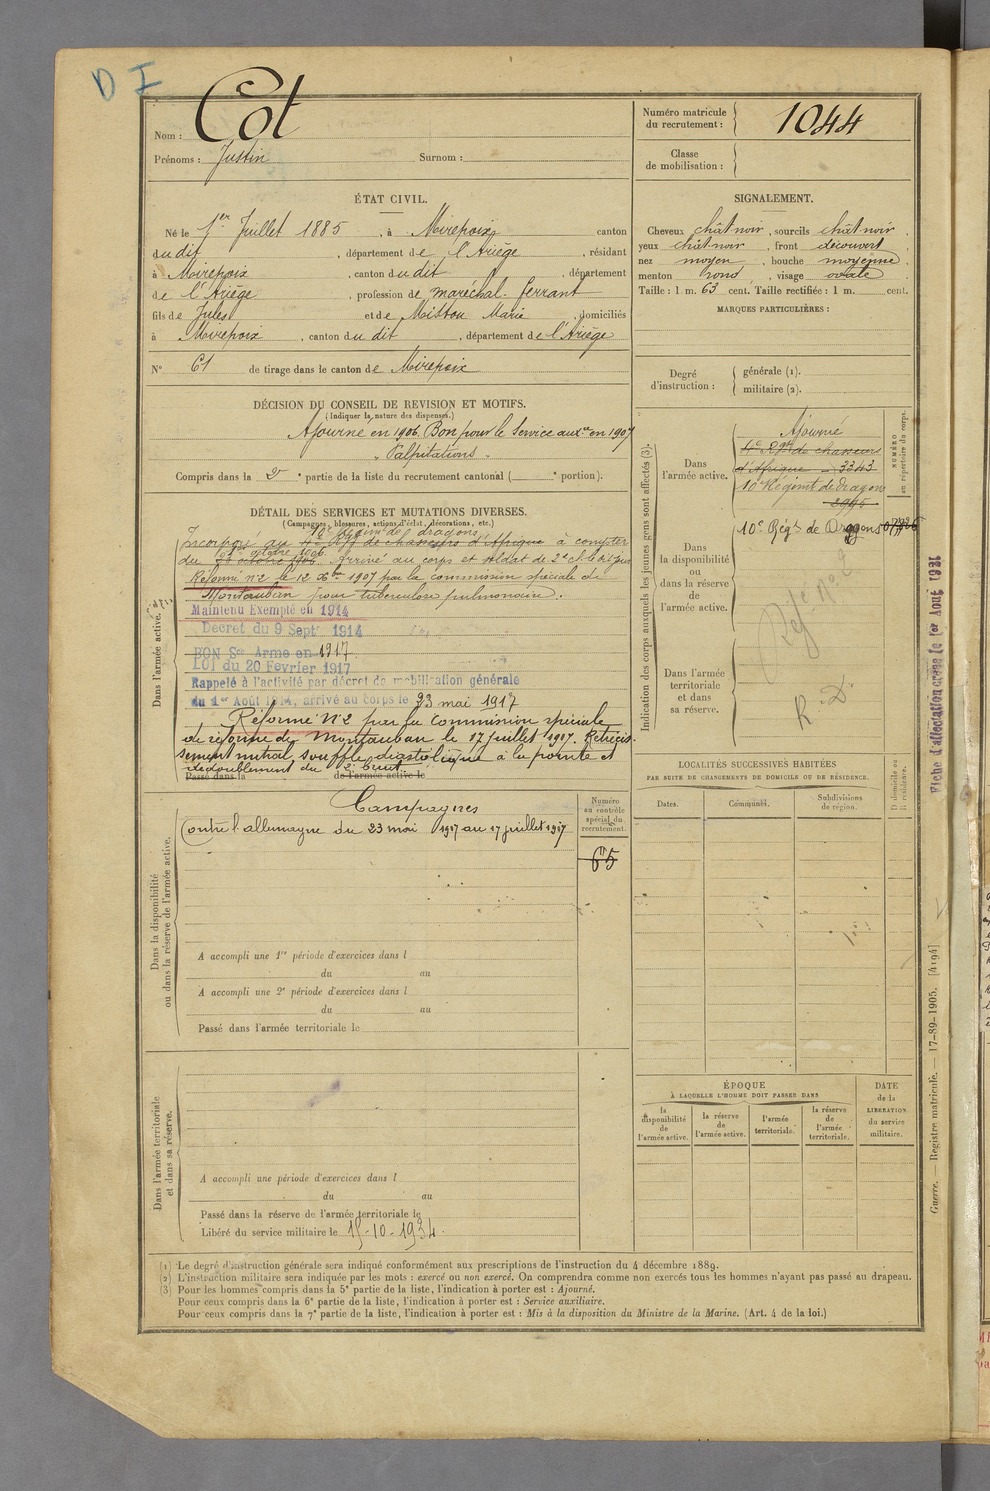 D I
Nom : Cot
Prénoms : Justin Surnom :
Numéro matricule du recrutement : 1044
Classe de mobilisation :
ÉTAT CIVIL.
Né le 1er Juillet 1885, à Mirepoix, canton
du dit, département de l'Ariège, résidant
à Mirepoix, canton du dit, département
de l'Ariège, profession de maréchal-ferrant
fils de Jules et de Mistou Marie, domiciliés
à Mirepoix, canton du dit, département de l'Ariège
N° 61 de tirage dans le canton de Mirepoix
SIGNALEMENT.
Cheveux chât noir, sourcils chât noir,
yeux chât noir, front découvert,
nez moyen, bouche moyenne,
menton rond, visage ovale
Taille : 1 m. 63 cent. Taille rectifiée : 1 m. cent.
MARQUES PARTICULIÈRES :
Degré d'instruction :
générale (1).
militaire (2).
DÉCISION DU CONSEIL DE REVISION ET MOTIFS.
(Indiquer la nature des dispenses.)
Ajourné en 1906. Bon pour le Service auxre en 1907
"Palpitations".
Compris dans la 2e partie de la liste du recrutement cantonal ( e portion).
DÉTAIL DES SERVICES ET MUTATIONS DIVERSES.
(Campagnes, blessures, actions d'éclat, décorations, etc.)
10e régim de dragons
Incorporé au 4e Rgt de chasseurs d'Afrique à compter
octobre 1906
du octobre 1906. Arrivé au corps et soldat de 2e cl. le dit jour
Réformé n°2 le 12 Xbre 1907 par la commission spéciale de
Montauban pour tuberculose pulmonaire.
Maintenu Exempté en 1914
Decret du 9 Septr 1914
BON Sce Armé en 1917
LOI du 20 Fevrier 1917
Rappelé à l'activité par décret de mobilisation générale
du 1er Août 1914, arrivé au corps le 23 mai 1917
Réformé N°2 par la Commission spéciale
de réforme de Montauban le 17 juillet 1917. Rétrécis-
sement mitral, souffle diastolique à la pointe et
dédoublement du 2e bruit.
Passé dans la de l'armée active le
Dans l'armée active.
Indication des corps auxquels les jeunes gens sont affectés (3).
Dans l'armée active.
Ajourné
4e Rgt de chasseurs
d'Afrique - 3343
10e Régiment de dragons
2095
NUMÉRO au répertoire du corps.
Dans la disponibilité ou dans la réserve de l'armée active.
10e Régt de Dragons
Réf. N° 2
Dans l'armée territoriale et dans sa réserve.
R. D
Fiche d'affectation créée le 1er Août 1921
Campagnes
Contre l'allemagne du 23 mai 1917 au 17 juillet 1917
Numéro au contrôle spécial du recrutement.
65
Dans la disponibilité ou dans la réserve de l'armée active.
A accompli une 1re période d'exercices dans l
du au
A accompli une 2e période d'exercices dans l
du au
Passé dans l'armée territoriale le
Dans l'armée territoriale et dans sa réserve.
A accompli une période d'exercices dans l
du au
Passé dans la réserve de l'armée territoriale le
Libéré du service militaire le 15-10-1934.
LOCALITÉS SUCCESSIVES HABITÉES
PAR SUITE DE CHANGEMENTS DE DOMICILE OU DE RÉSIDENCE.
Dates. Communes. Subdivisions de région. D domicile ou R résidence.
ÉPOQUE
À LAQUELLE L'HOMME DOIT PASSER DANS
la disponibilité de l'armée active.
la réserve de l'armée active.
l'armée territoriale.
la réserve de l'armée territoriale.
DATE de la LIBÉRATION du service militaire.
Guerre. — Registre matricule. — 17-89-1905. [4194]
(1) Le degré d'instruction générale sera indiqué conformément aux prescriptions de l'instruction du 4 décembre 1889.
(2) L'instruction militaire sera indiquée par les mots : exercé ou non exercé. On comprendra comme non exercés tous les hommes n'ayant pas passé au drapeau.
(3) Pour les hommes compris dans la 5e partie de la liste, l'indication à porter est : Ajourné.
Pour ceux compris dans la 6e partie de la liste, l'indication à porter est : Service auxiliaire.
Pour ceux compris dans la 7e partie de la liste, l'indication à porter est : Mis à la disposition du Ministre de la Marine. (Art. 4 de la loi.)